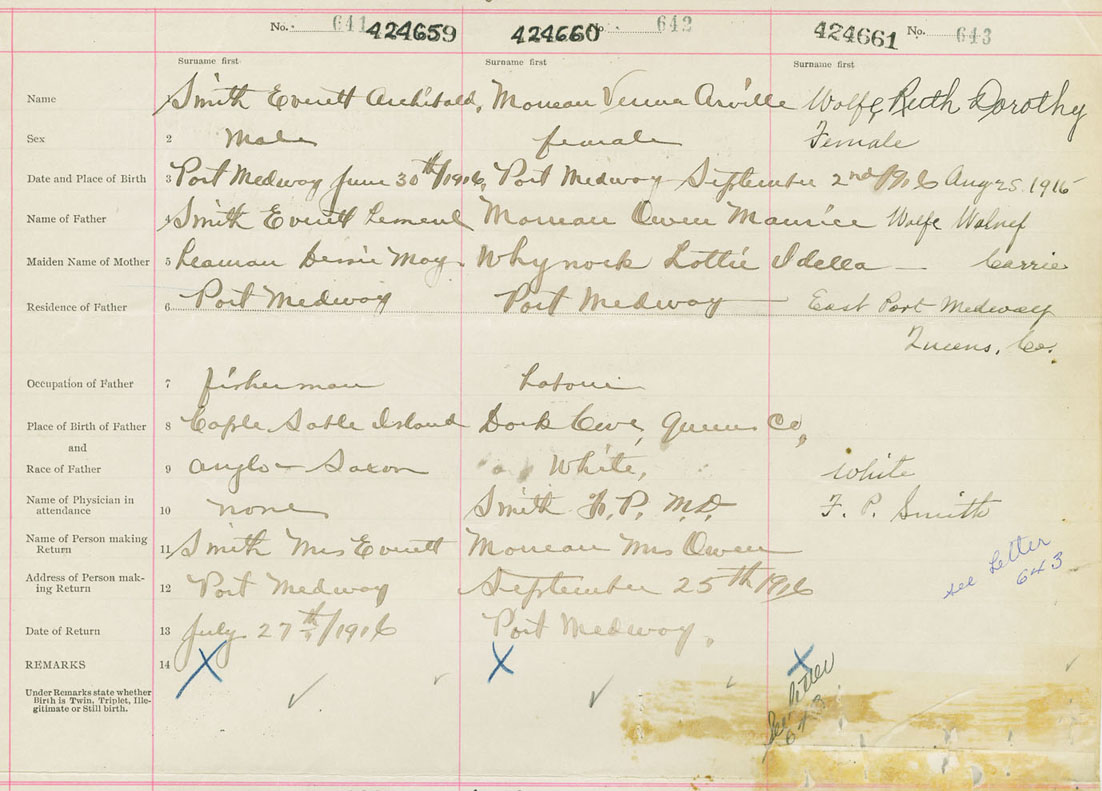 No. 641 424659 424660 No. 642 424661 No. 643
Surname first Surname first Surname first
Name Smith Everett Archibald, Moreau Verna Arville Wolfe, Ruth Dorothy
Sex 2 Male female Female
Date and Place of Birth 3 Port Medway June 30th/1916, Port Medway September 2nd/1916 Aug 25. 1916
Name of Father 4 Smith Everett Moreau Owen Maurice Wolfe
Maiden Name of Mother 5 Leaman May. Whynock Lottie Idella — Carrie
Residence of Father 6 Port Medway Port Medway — East Port Medway
Queens, Co.
Occupation of Father 7 fisherman
Place of Birth of Father 8 Cape Sable Island Cove, Queens Co,
and
Race of Father 9 Anglo-Saxon White, White
Name of Physician in
attendance 10 none Smith F. P. M.D. F. P. Smith
Name of Person making
Return 11 Smith Mrs Everett Moreau Mrs Owen
see Letter
643
Address of Person mak-
ing Return 12 Port Medway September 25th 1916
Date of Return 13 July 27th/1916 Port Medway,
REMARKS 14 X X X
Under Remarks state whether
Birth is Twin, Triplet, Ille-
gitimate or Still birth.
See letter
643